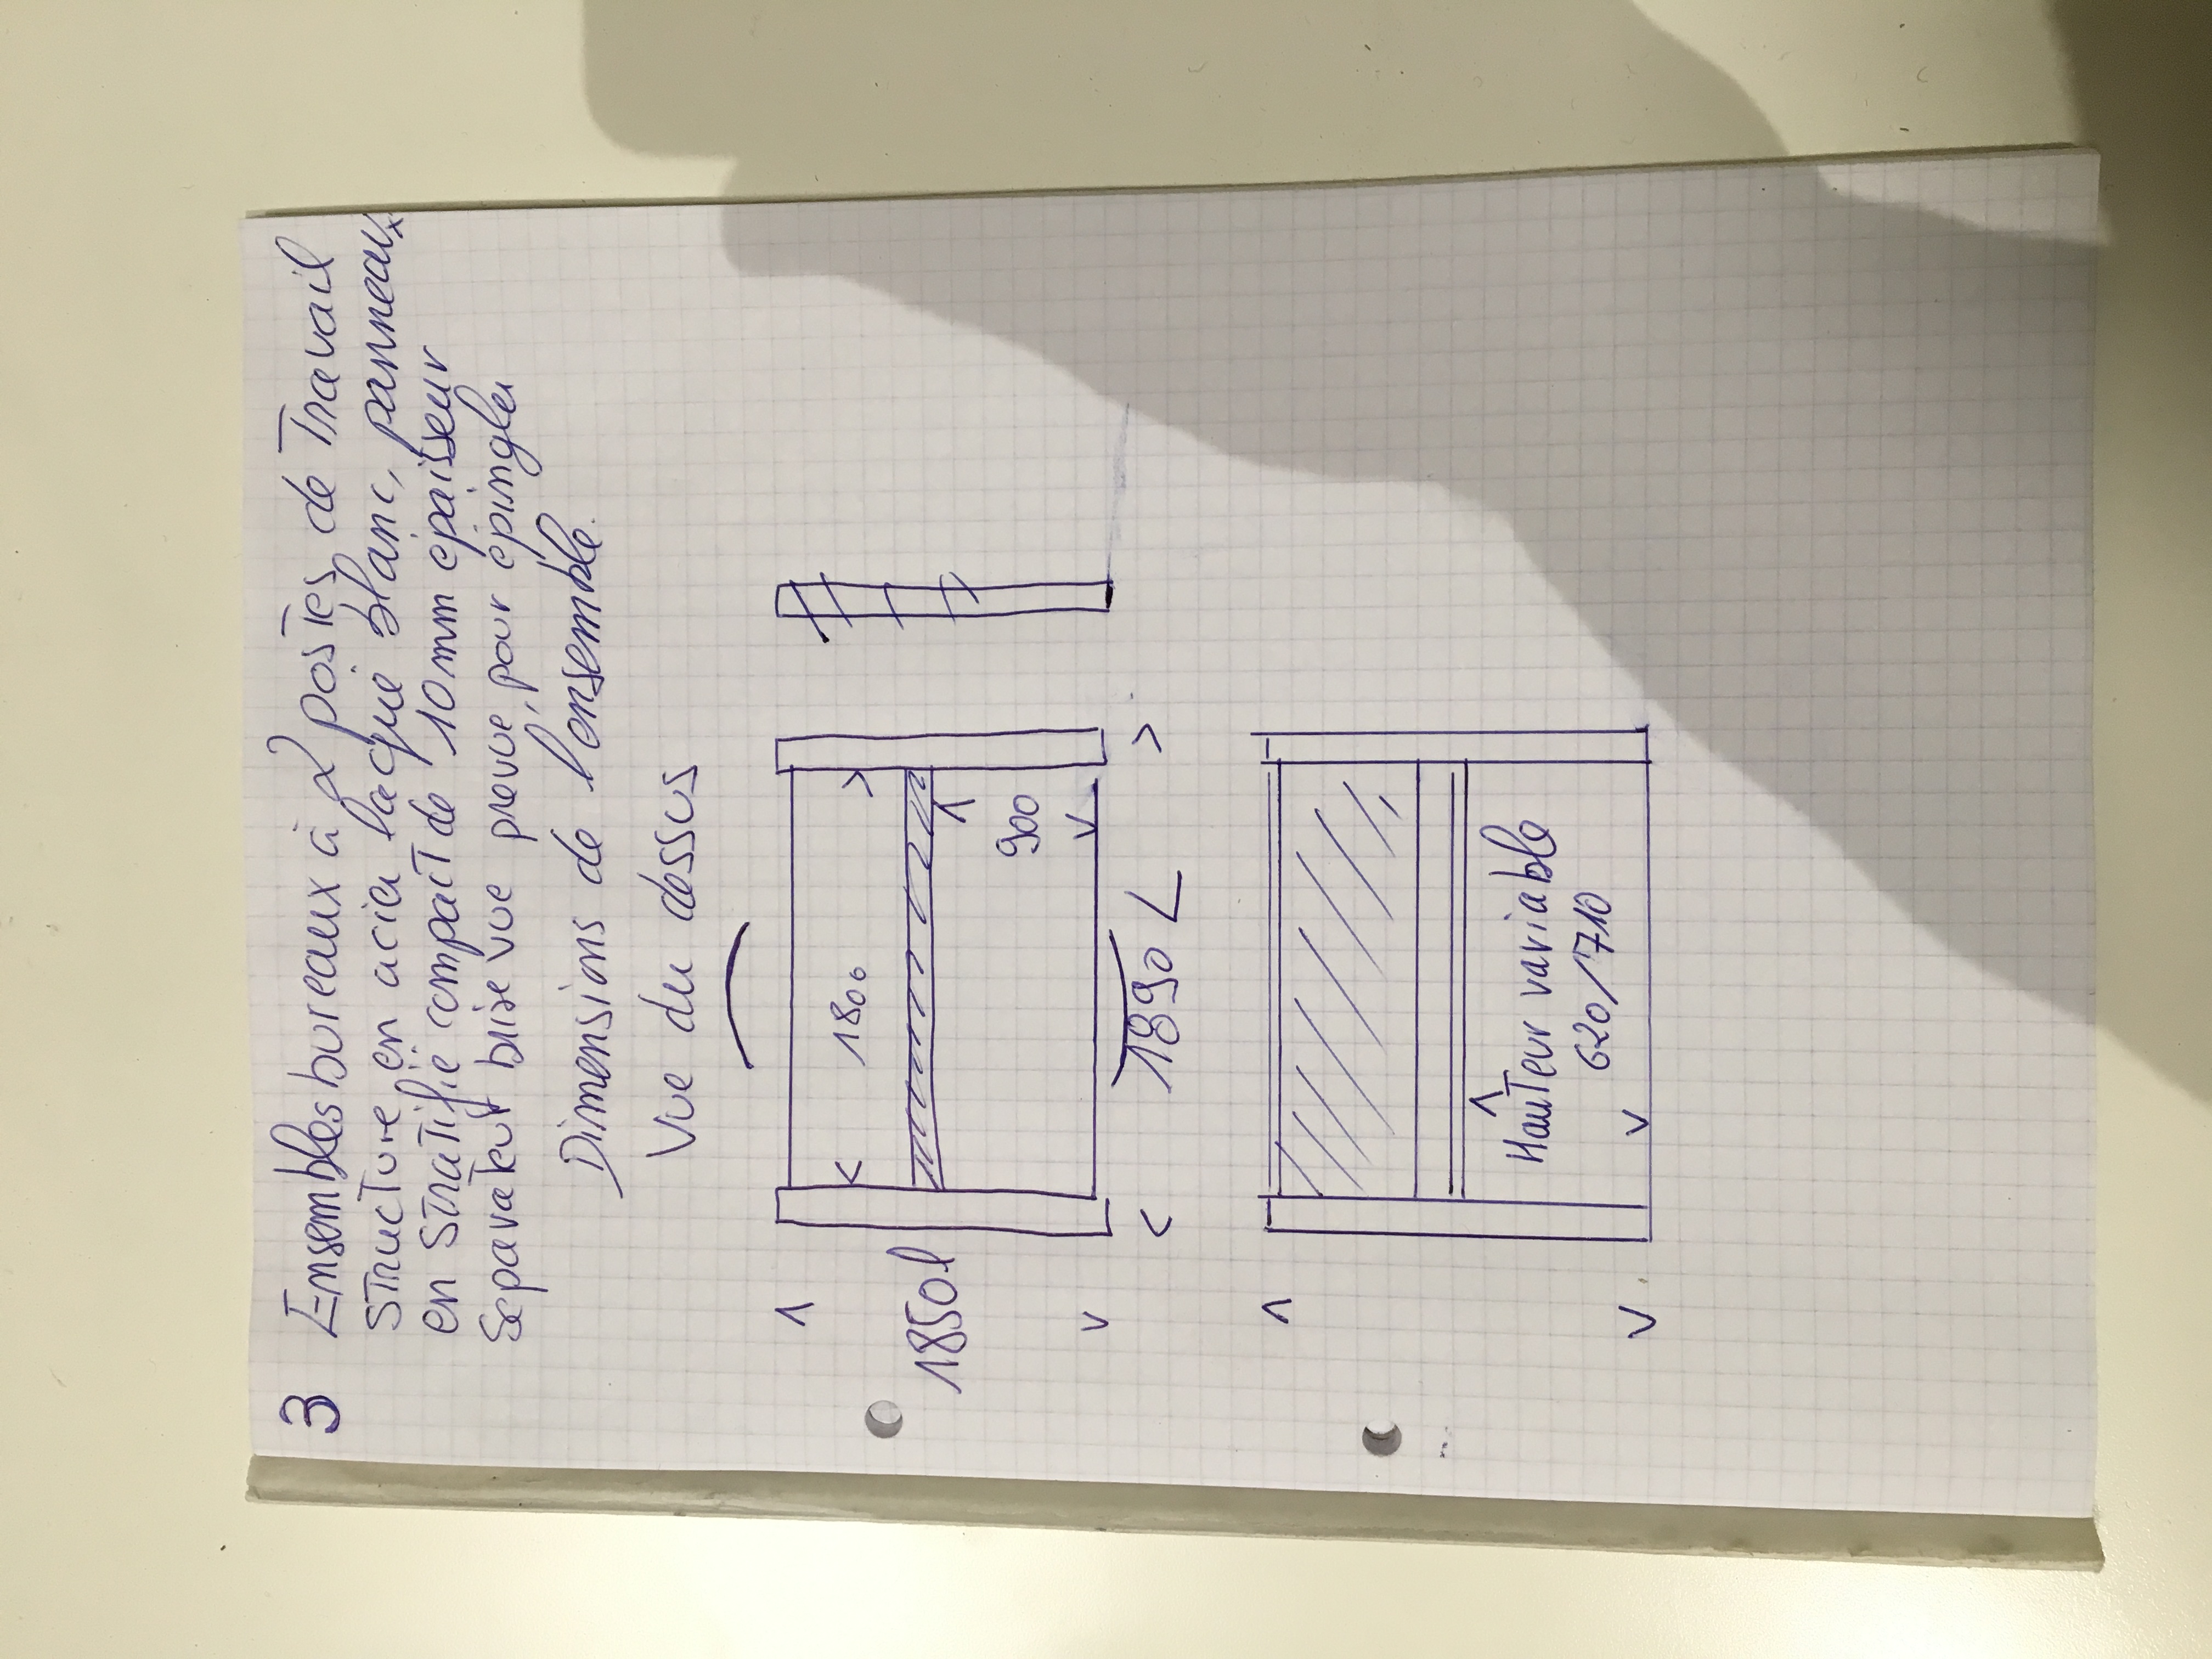 3 Ensembles bureaux à 2 postes de Travail
structure en acier laqué blanc, panneaux
en stratifié compact de 10mm epaisseur
Separateur brise vue prevue, pour épingler
Dimensions de l'ensemble.
Vue du dessus
1800
900
1850 l
1890 L
Hauteur variable
620/710